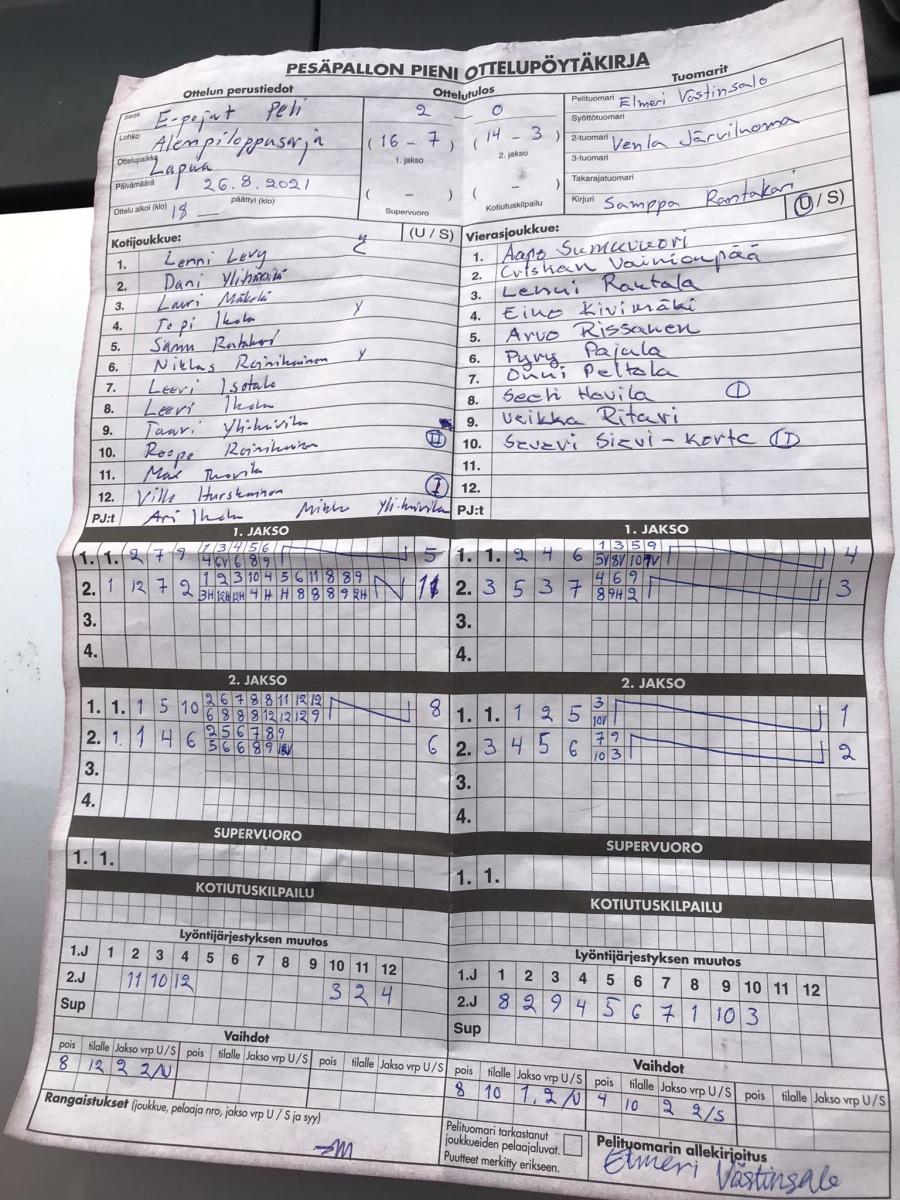 PESÄPALLON PIENI OTTELUPÖYTÄKIRJA
Ottelun perustiedot
Sarja E-pojat Peli
Lohko Alempiloppusarja
Ottelupaikka Lapua
Päivämäärä 26.8.2021
Ottelu alkoi (klo) 18 — päättyi (klo)
Ottelutulos
2 0
(16 - 7) (14 - 3)
1. jakso 2. jakso
( - ) ( - )
Supervuoro Kotiutuskilpailu
Tuomarit
Pelituomari Elmeri Västinsalo
Syöttötuomari
2-tuomari Venla Järviluoma
3-tuomari
Takarajatuomari
Kirjuri Samppa Rantakari
Kotijoukkue: (U / S)
1. Lenni Levy
2. Dani Ylihärsilä
3. Lauri Mäkelä
4. Topi Ikola y
5. Samu Ratakari
6. Niklas Reinikainen y
7. Leevi Isotalo
8. Leevi Ikola
9. Taavi
10. Roope Reinikainen II
11. Max
12. Ville Hurskainen I
PJ:t Ari Ikola Mikko
Vierasjoukkue: (U / S)
1. Aapo
2. Vainionpää
3. Lenni Rantala
4. Eino Kivimäki
5. Arvo Rissanen
6. Pyry Pajula
7. Onni Peltola
8. I
9. Veikka Ritari
10. II
11.
12.
PJ:t
1. JAKSO
1. 1. 2 7 9 1 3 4 5 6 5
4 6V 6 8 9
2. 1 12 7 2 1 2 3 10 4 5 6 11 8 8 9 11
3.
4.
1. JAKSO
1. 1. 2 4 6 1 3 5 9 4
5V 8V 10
2. 3 5 3 7 4 6 9 3
8 9H 2
3.
4.
2. JAKSO
1. 1. 1 5 10 2 6 7 8 8 11 12 12 8
6 8 8 8 12 12 12 9
2. 1. 1 4 6 2 5 6 7 8 9 6
5 6 6 8 9
3.
4.
2. JAKSO
1. 1. 1 2 5 3 1
10V
2. 3 4 5 6 7 9 2
10 3
3.
4.
SUPERVUORO
1. 1.
SUPERVUORO
1. 1.
KOTIUTUSKILPAILU
KOTIUTUSKILPAILU
Lyöntijärjestyksen muutos
1.J 1 2 3 4 5 6 7 8 9 10 11 12
2.J 11 10 12 3 2 4
Sup
Lyöntijärjestyksen muutos
1.J 1 2 3 4 5 6 7 8 9 10 11 12
2.J 8 2 9 4 5 6 7 1 10 3
Sup
Vaihdot
pois tilalle Jakso vrp U/S pois tilalle Jakso vrp U/S pois tilalle Jakso vrp U/S
8 12 2 2/U
Vaihdot
pois tilalle Jakso vrp U/S pois tilalle Jakso vrp U/S pois tilalle Jakso vrp U/S
8 10 1. 2/U 4 10 2 2/S
Rangaistukset (joukkue, pelaaja nro, jakso vrp U / S ja syy)
Pelituomari tarkastanut
joukkueiden pelaajaluvat.
Puutteet merkitty erikseen.
Pelituomarin allekirjoitus
Elmeri Västinsalo